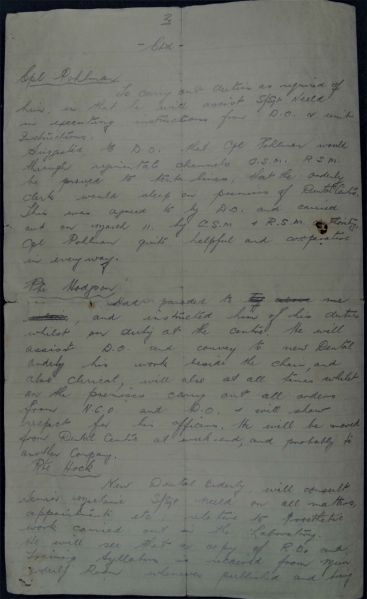 3
- Ctd -
Cpl Pohlman
To carry out duties as required of
him, in that he will assist S/Sgt Neeld
in executing instructions from D.O. & unit
Instructions.
Suggested to D.O. that Cpl Pohlman would
through channels C.S.M. R.S.M.
be moved to that the orderly
clerk would sleep on premises of Dental Centre.
This was agreed to by D.O. and carried
out on March 11. by C.S.M & R.S.M.
Cpl Pohlman quite helpful and cooperative
in every way.
Pte Hodgson
Had paraded to me
and instructed him of his duties
whilst on duty at the centre. He will
assist D.O. and convey to new Dental
orderly his work beside the chair, and
also clerical, will also at all times whilst
on the premises carry out all orders
from N.C.O and D.O. & will show
respect for his officers. He will be moved
from Dental Centre at week-end, and probably to
another Company.
Pte Hock
New Dental Orderly, will consult
Senior S/Sgt Neeld on all matters,
appointments etc. relative to Prosthetic
work carried out in the Laboratory.
He will see that a copy of R.Os and
Training Syllabus is received from
Orderly Room whenever published and